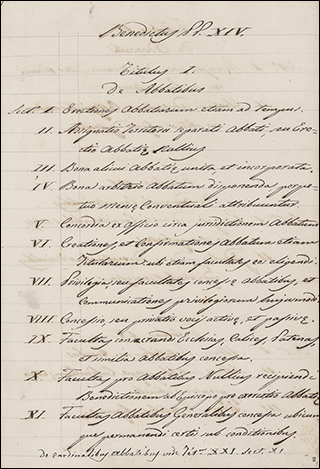 Benedictus PP. XIV.
Titulus I.
De Abbatibus
Sect. I. Erectiones Abbatiarum etiam ad tempus.
II. Assignatio Territorii separati Abbati, seu Ere-
ctio Abbatiæ Nullius
III. Bona alicui Abbatiæ unita et incorporata.
IV. Bona arbitrio Abbatum disponenda perpe-
tuo Mensæ Conventuali attribuuntur.
V. Concordia ex officio circa jurisdictionem Abbatum
VI. Creationes et Confirmationes Abbatum etiam
Titularium ubi etiam facultas eos eligendi.
VII. Privilegia, seu facultates concessæ Abbatibus, et
Communicationes privilegiorum hujusmodi
VIII. Concessio, seu privatio vocis activæ, et passivæ.
IX. Facultas consecrandi Ecclesias, Calices, Patenas
et similia Abbatibus concessa.
X. Facultas pro Abbatibus Nullius recipiendi
Benedictionem ab Episcopo pro Abbatibus
XI. Facultas Abbatibus Generalibus concessa ubicum
que permanendi certis sub conditionibus
De Cardinalibus Abbatibus vide Tit.um XXI. Sect. XI.
2